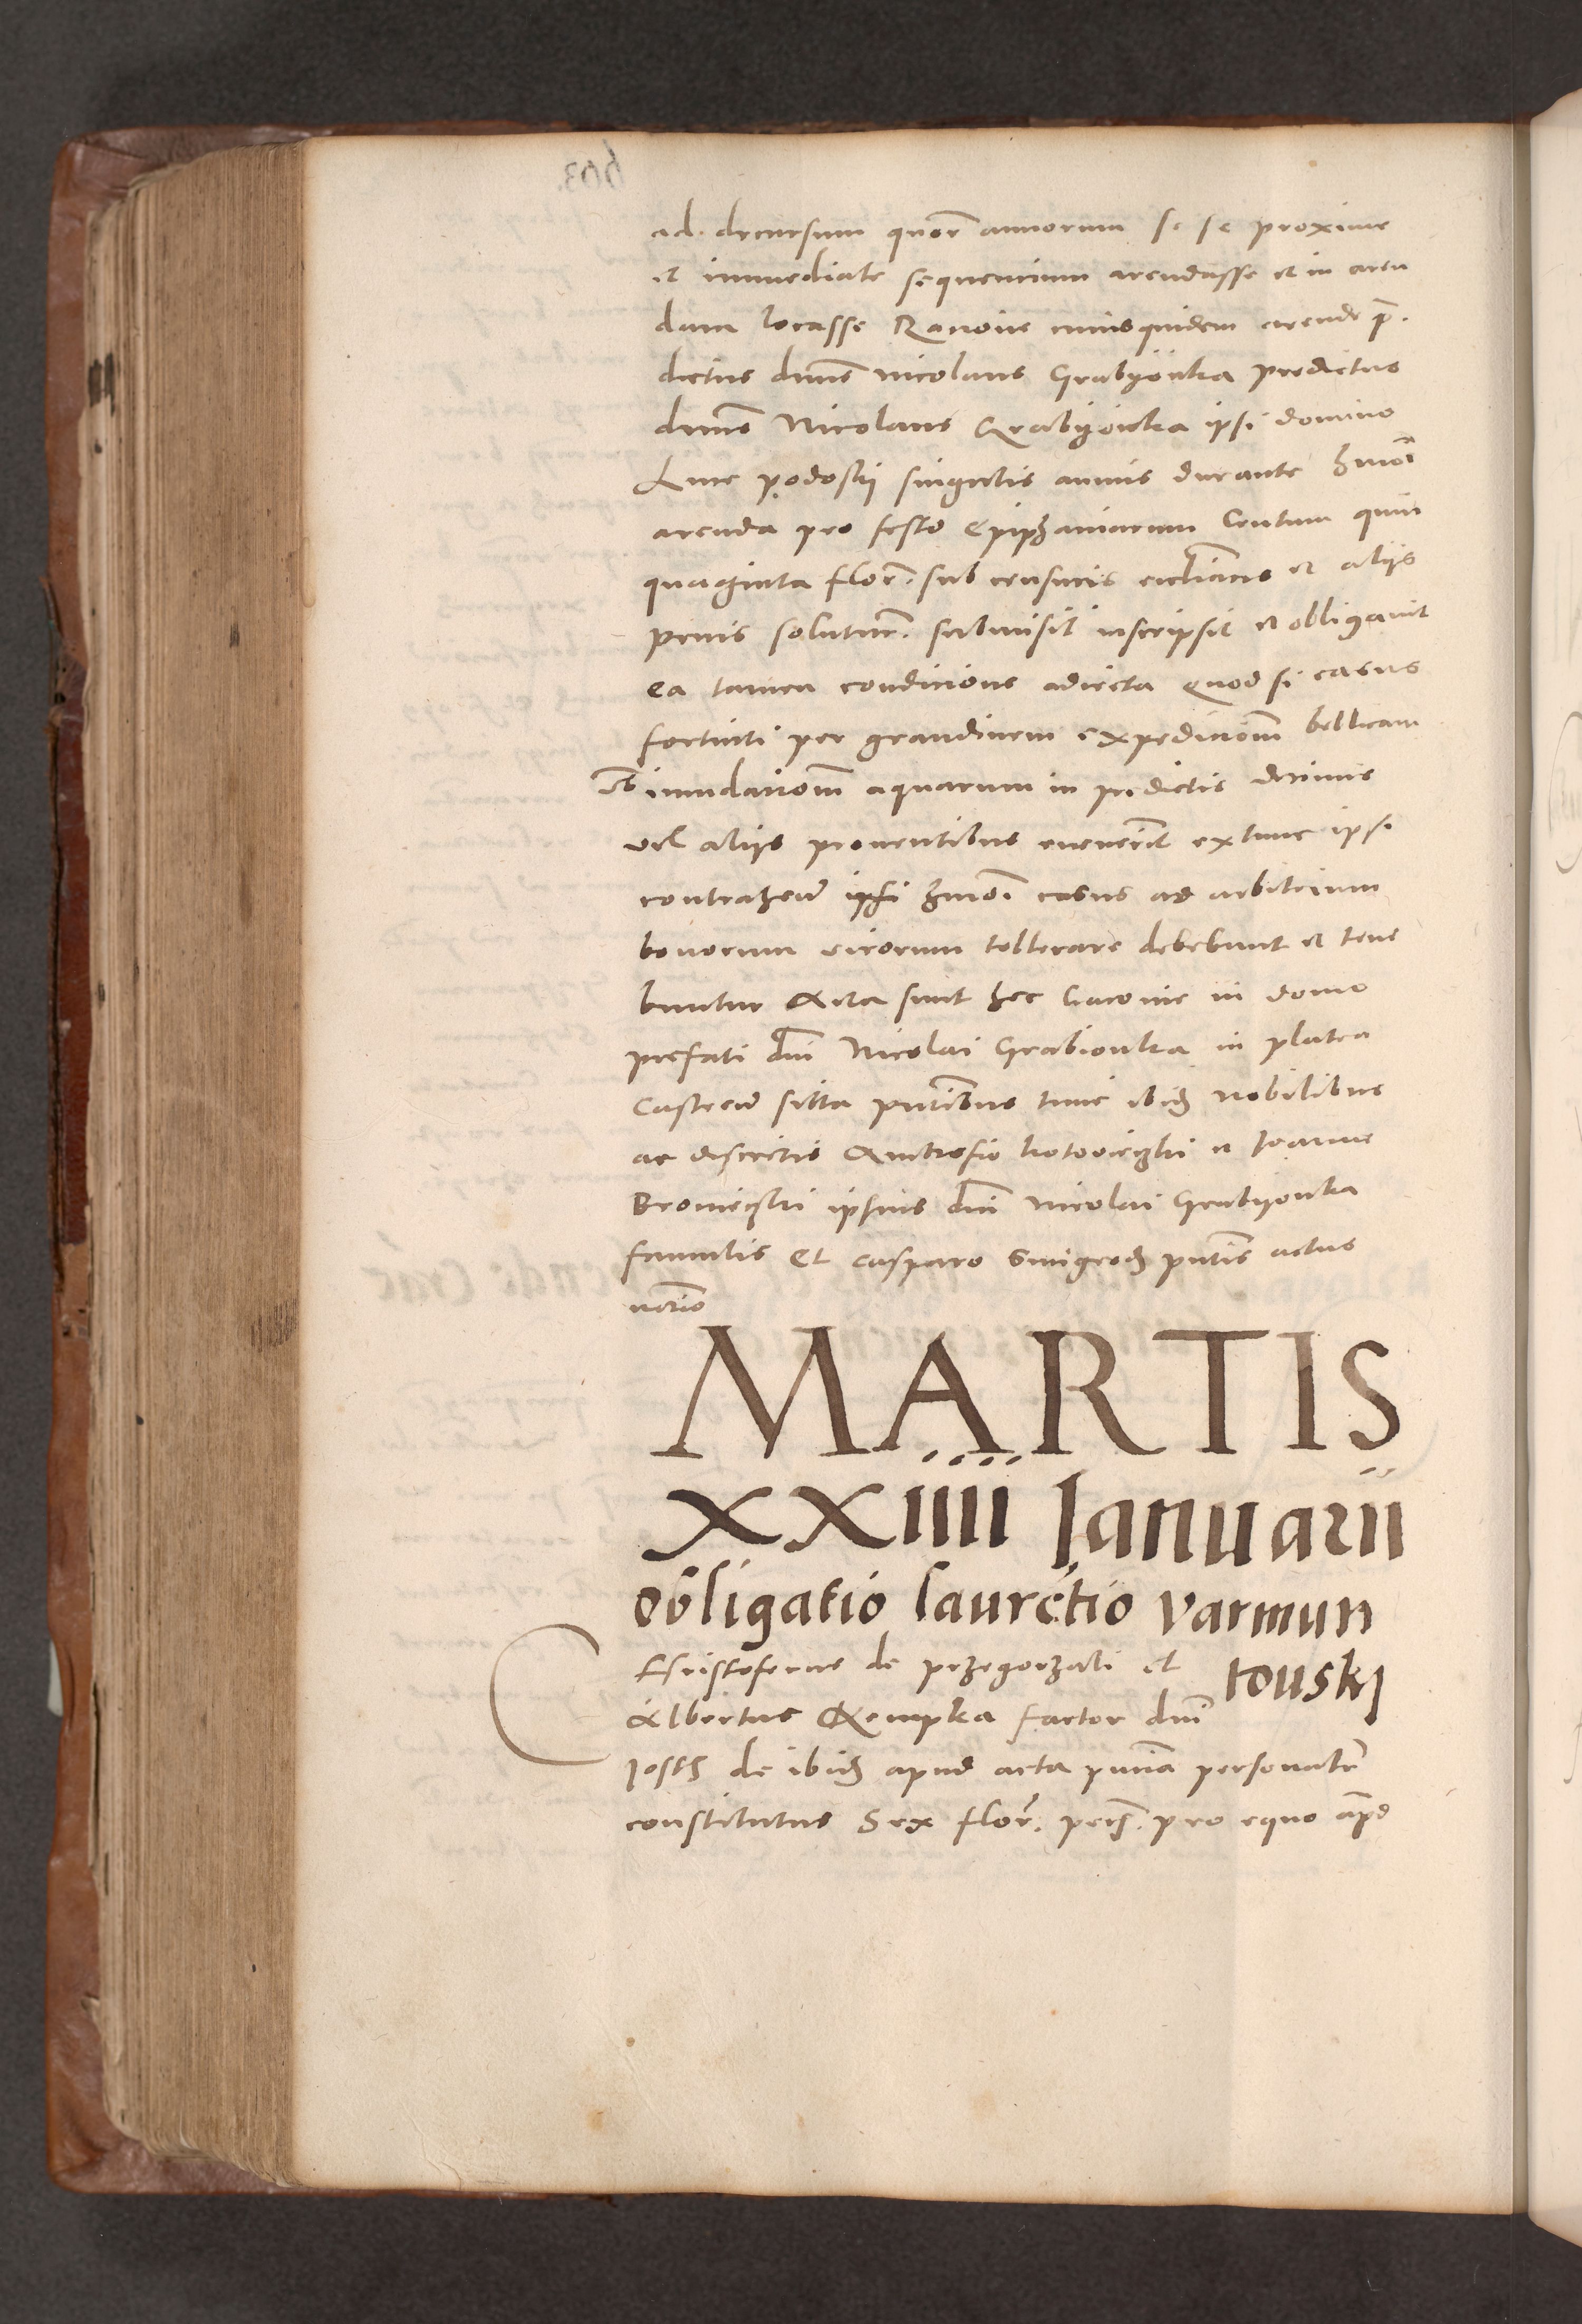 ad decursum quor annorum se se proxime
et immediate sequencium arendasse et in aren
dam locasse Racione cuiusquidem arende p̄.
dictus dnus Nicolaus Grabyonka predictus
dnus Nicolaus Grabyonka ipsi domino
Luce podoskij singulis annis durante hmōi
arenda pro festo Epiphaniarum Centum quin
quaginta flor. sub censuris ecclīacis et alijs
penis solutur. submisit inscripsit et obligavit
ea tamen condicione adiecta Quod si casus
fortuiti per grandinem expedicionem bellicam
inundacionem aquarum in predictis decimis
vel alijs proventibus evenerint extunc ipsi
contrahen ipsi hmōi casus ad arbitrium
bonorum virorum tollerare debebunt et tene
buntur Acta sunt hec Cracovie in domo
prefati dni Nicolai Grabionka in platea
Castren sitta pntibus tunc ibidem nobilibus
ac discretis Ambrosio et Joanne
ipsius dni Nicolai Grabyonka
famulis Et Casparo pntis actus
notario
MARTIS
XXIIII Ianuarii
Obligatio laurētio varmun
touskj
Cristoferus de przegorzali et
Albertus Rempka factor dni
Josth de ibidem apud acta pntia personaliter
constitutus Sex flor. pecūn. pro equo apd